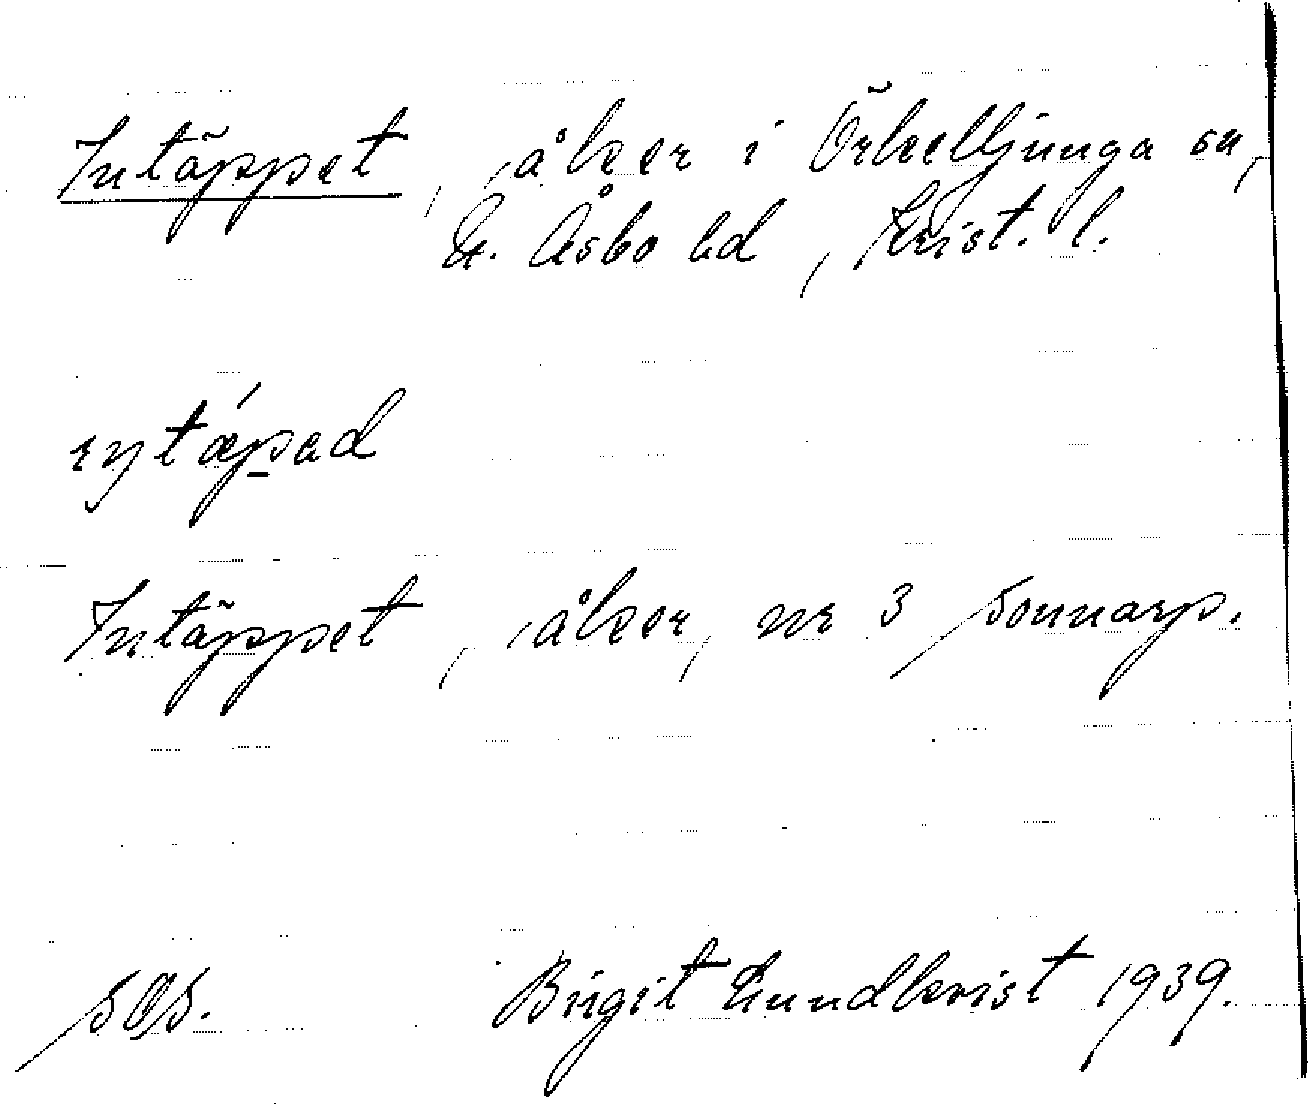 Intäppet, åker i Örkelljunga sn,
N. Åsbo hd, Krist. l.
Intäppet, åker, nr 3 Sonnarp.
SOS. Birgit Lundkvist 1939.